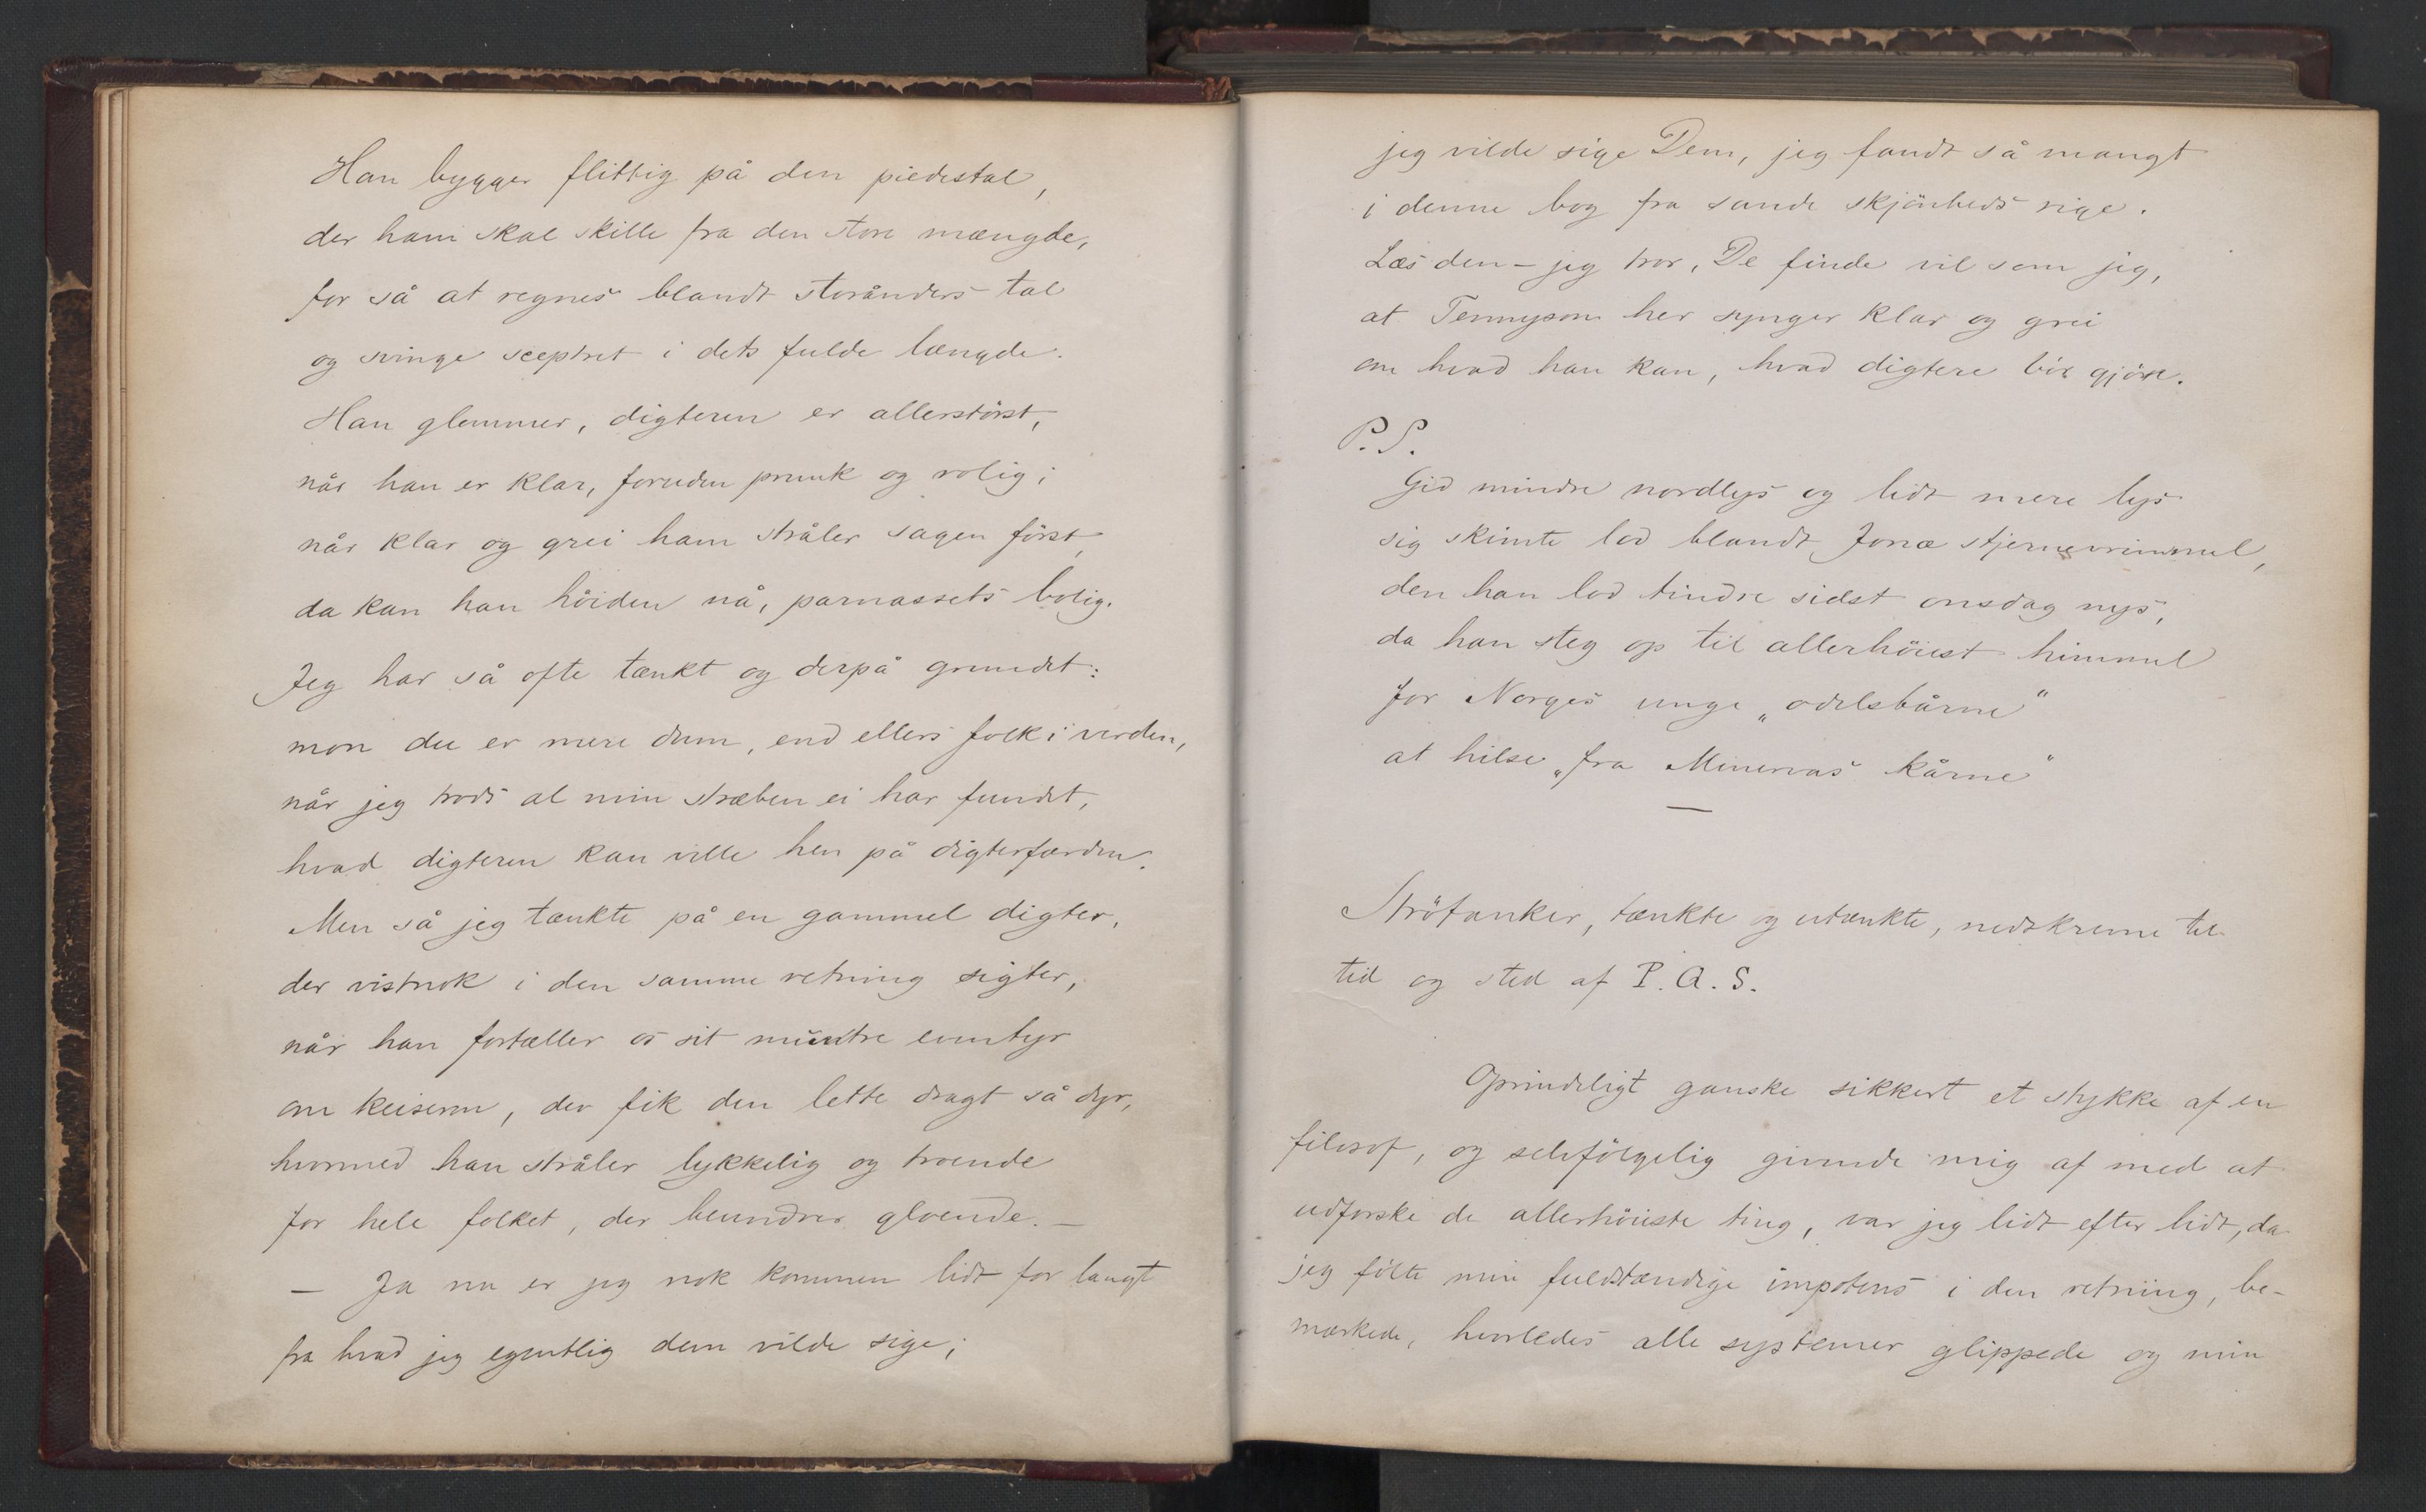 Han bygger flittig på den piedestal,
der ham skal skille fra den store mængde,
for så at regnes blandt storånders tal
og svinge sceptret i dets fulde længde.
Han glemmer, digteren er allerstörst,
når han er klar, foruden prunk og rolig;
når klar og grei ham stråler sagen först,
da kan han höiden nå, parnassets bolig.
Jeg har så ofte tænkt og derpå grundet:
mon du er mere dum, end ellers folk i verden,
når jeg trods al min stræben ei har fundet,
hvad digteren kan ville hen på digterfærden.
Men så jeg tænkte på en gammel digter,
der vistnok i den samme retning sigter,
når han fortæller os sit muntre eventyr
om keiseren, der fik den lette dragt så dyr,
hvormed han stråler lykkelig og troende
for hele folket, der beundrer gloende. —
— Ja nu er jeg nok kommen lidt for langt
fra hvad jeg egentlig dem vilde sige;
jeg vilde sige Dem, jeg fandt så mangt
i denne bog fra sande skjönheds rige.
Læs den – jeg tror, De finde vil som jeg,
at Tennyson her synger klar og grei
om hvad han kan, hvad digtere bör gjöre.
P.S.
Gid mindre nordlys og lidt mere lys
sig skimte lod blandt Jonæ stjernevrimmel,
den han lod tindre sidst onsdag nys,
da han steg op til allerhöiest himmel
for Norges unge „odelsbårne“
at hilse „fra Minervas kårne“
—
Strötanker, tænkte og utænkte, nedskrevne til
tid og sted af P. A. S.
Oprindeligt ganske sikkert et stykke af en
filosof, og selvfölgelig givende mig af med at
udforske de allerhöieste ting, var jeg lidt efter lidt, da
jeg fölte min fuldstændige impotens i den retning, be-
mærkede, hvorledes alle systemer glippede og min